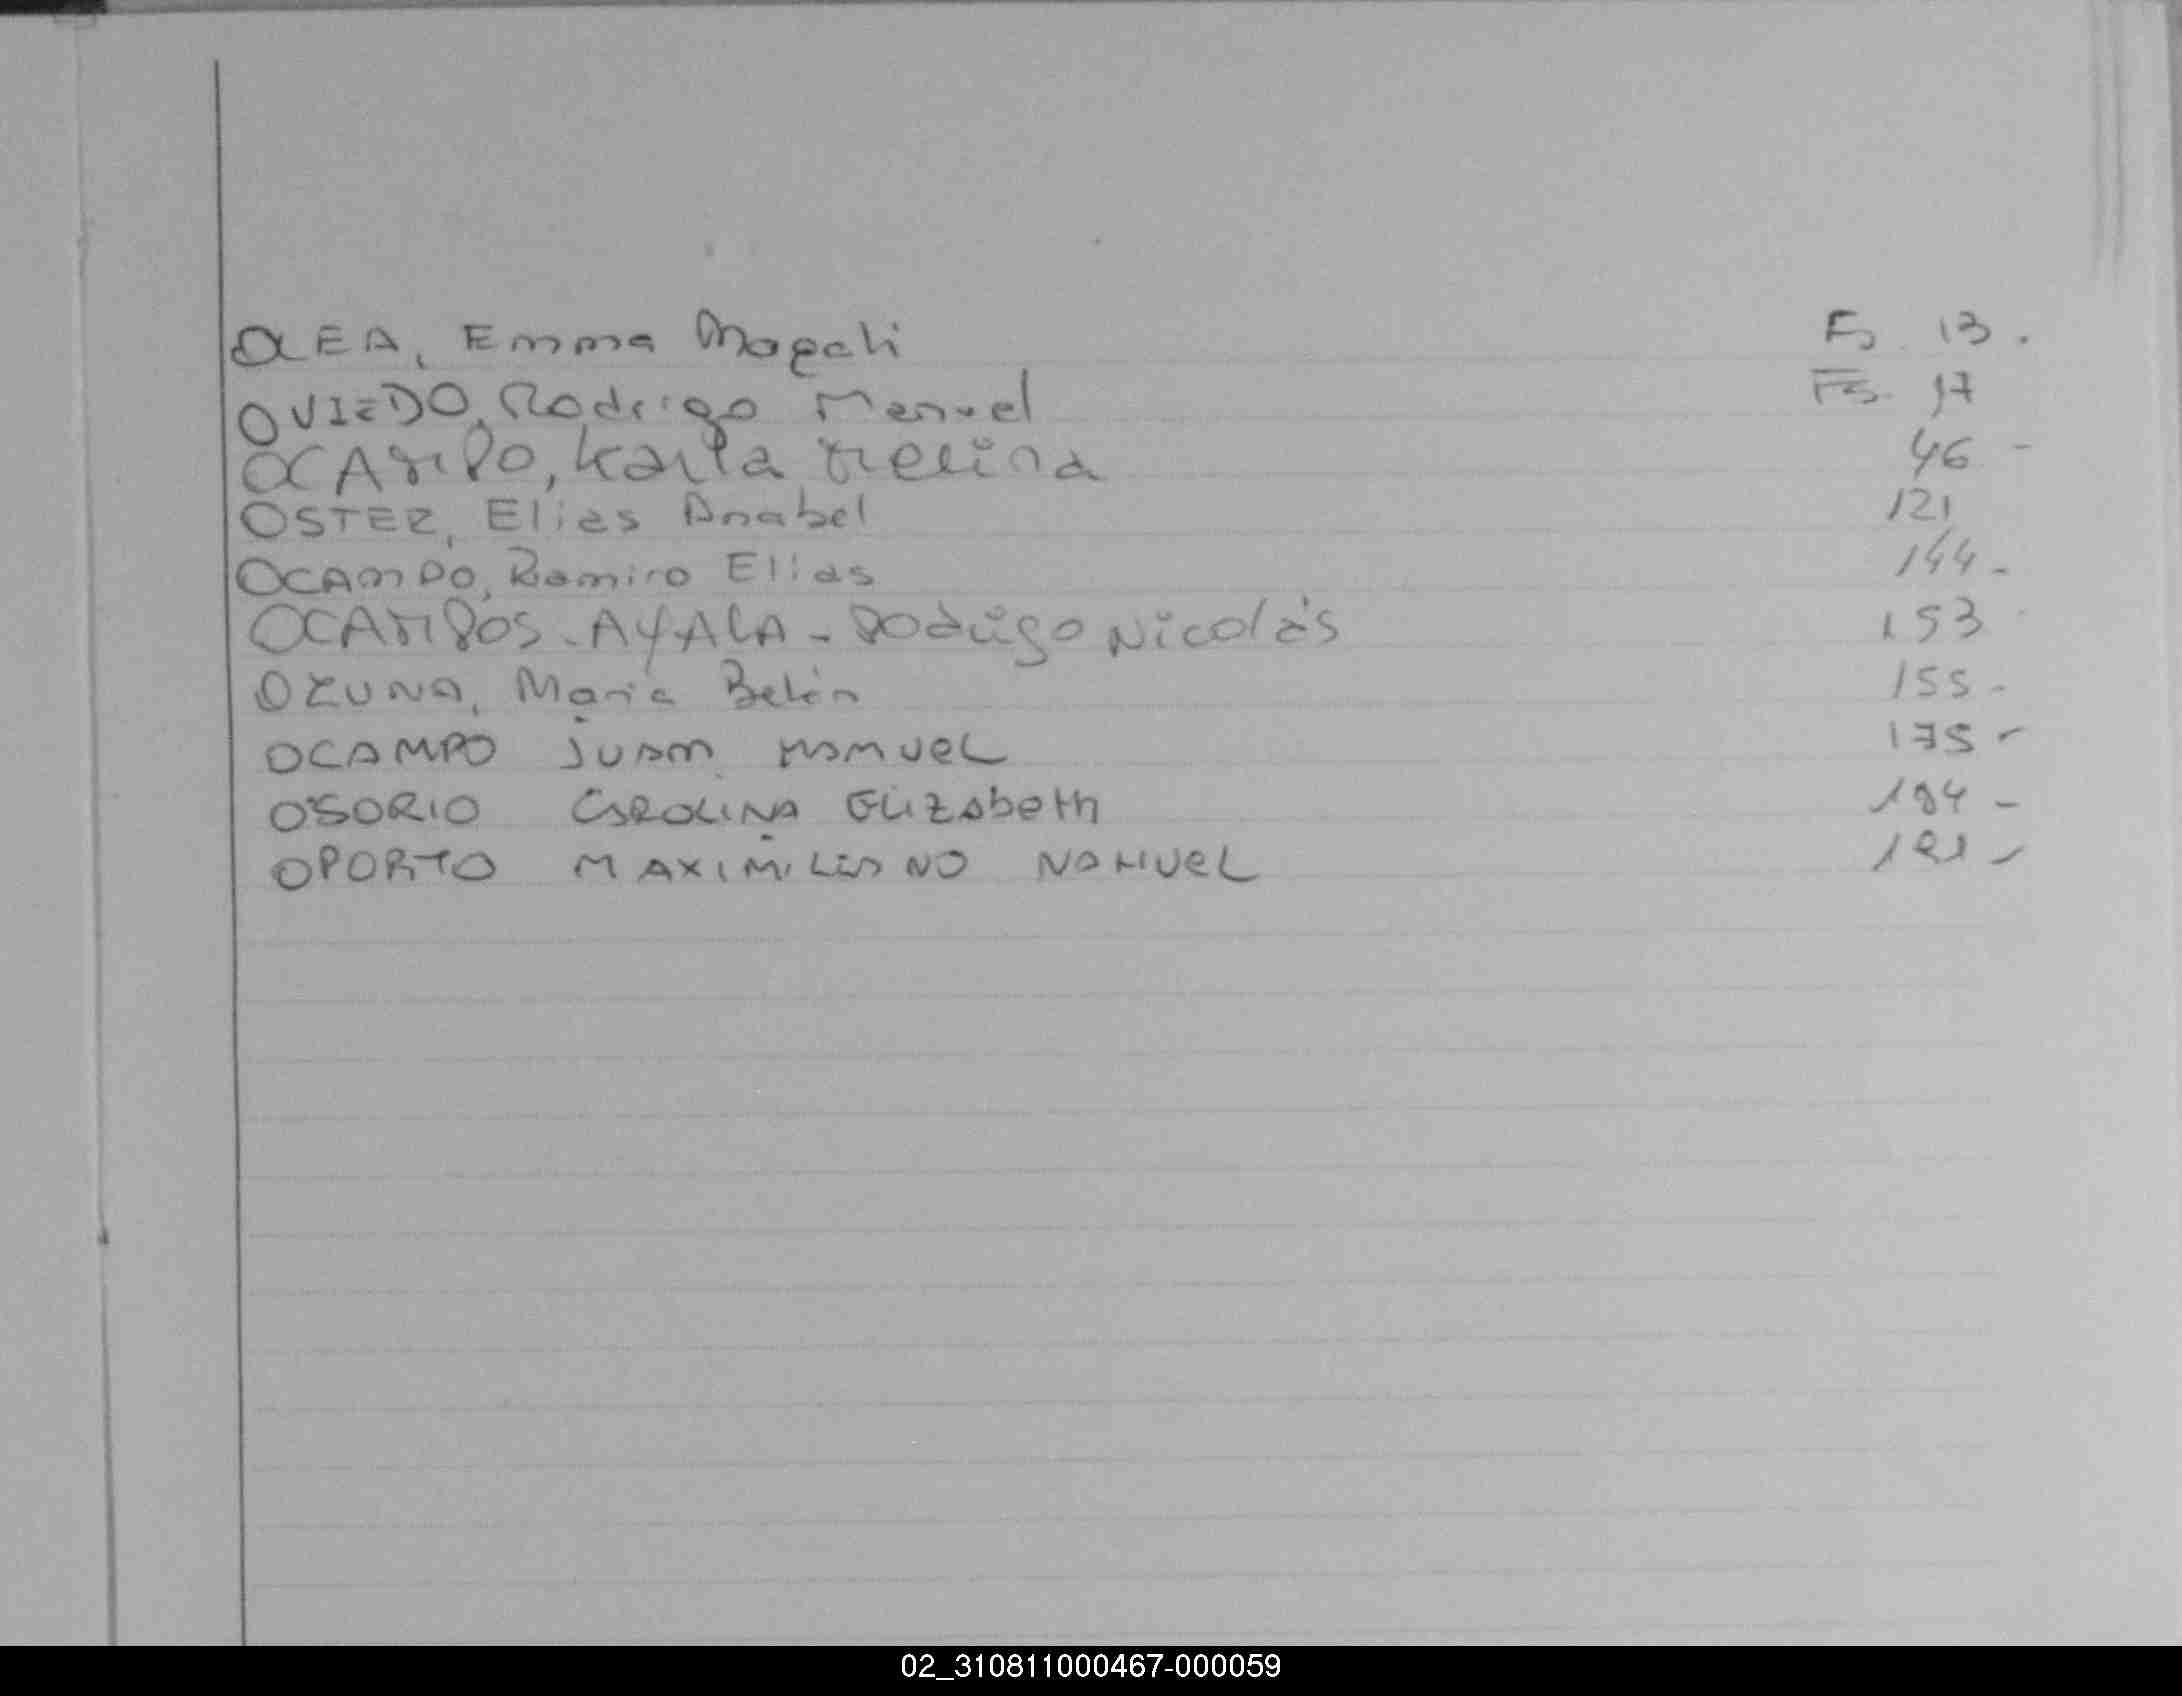 OLEA, Emma Magali Fs. 13.
OVIEDO, Rodrigo Manuel Fs. 17
OCAMPO, Karla Melina 46 -
OSTEZ, Elias Anabel 121
OCAMPO, Ramiro Elias 144 -
OCAMPOS - AYALA - Rodrigo Nicolás 153
OZUNA, Maria Belén 155 -
OCAMPO JUAN MANUEL 175 -
OSORIO CAROLINA ELIZABETH 184 -
OPORTO MAXIMILIANO NAHUEL 191 -
02_310811000467-000059